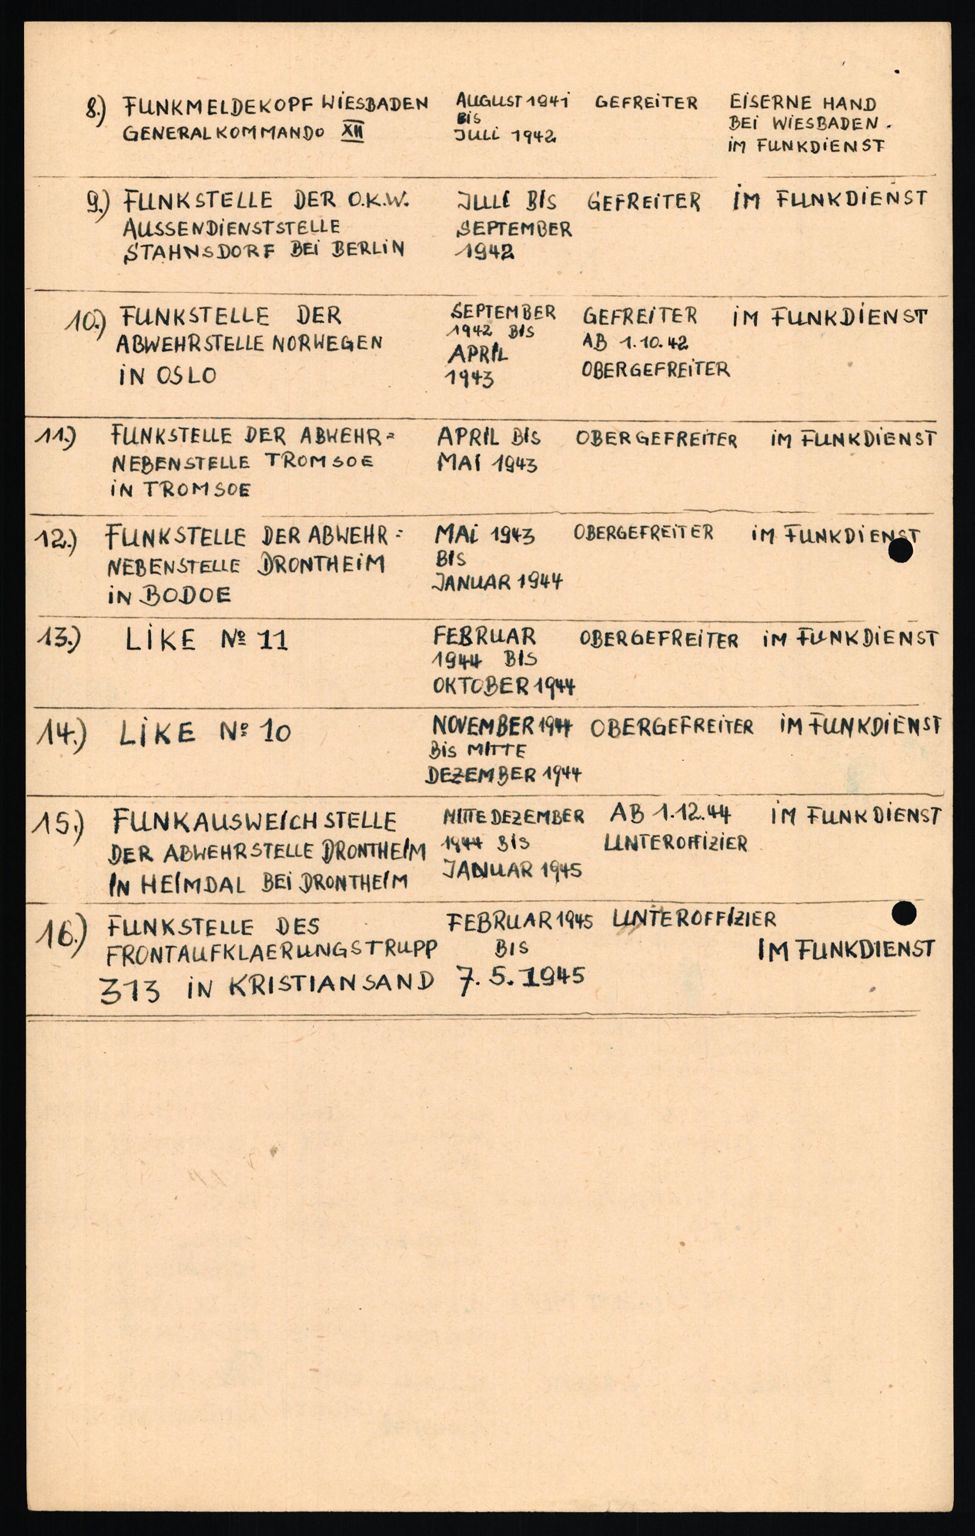 8.) FUNKMELDEKOPF WIESBADEN AUGUST 1941 GEFREITER EISERNE HAND
GENERALKOMMANDO XII BIS BEI WIESBADEN.
JULI 1942 IM FUNKDIENST
9.) FUNKSTELLE DER O.K.W. JULI BIS GEFREITER IM FUNKDIENST
AUSSENDIENSTSTELLE SEPTEMBER
STAHNSDORF BEI BERLIN 1942
10.) FUNKSTELLE DER SEPTEMBER GEFREITER IM FUNKDIENST
ABWEHRSTELLE NORWEGEN 1942 BIS AB 1.10.42
IN OSLO APRIL OBERGEFREITER
1943
11.) FUNKSTELLE DER ABWEHR= APRIL BIS OBERGEFREITER IM FUNKDIENST
NEBENSTELLE TROMSOE MAI 1943
IN TROMSOE
12.) FUNKSTELLE DER ABWEHR= MAI 1943 OBERGEFREITER IM FUNKDIENST
NEBENSTELLE DRONTHEIM BIS
IN BODOE JANUAR 1944
13.) LIKE № 11 FEBRUAR OBERGEFREITER IM FUNKDIENST
1944 BIS
OKTOBER 1944
14.) LIKE № 10 NOVEMBER 1944 OBERGEFREITER IM FUNKDIENST
BIS MITTE
DEZEMBER 1944
15.) FUNKAUSWEICHSTELLE MITTE DEZEMBER AB 1.12.44 IM FUNKDIENST
DER ABWEHRSTELLE DRONTHEIM 1944 BIS UNTEROFFIZIER
IN HEIMDAL BEI DRONTHEIM JANUAR 1945
16.) FUNKSTELLE DES FEBRUAR 1945 UNTEROFFIZIER
FRONTAUFKLAERUNGSTRUPP BIS IM FUNKDIENST
313 IN KRISTIANSAND 7.5.1945